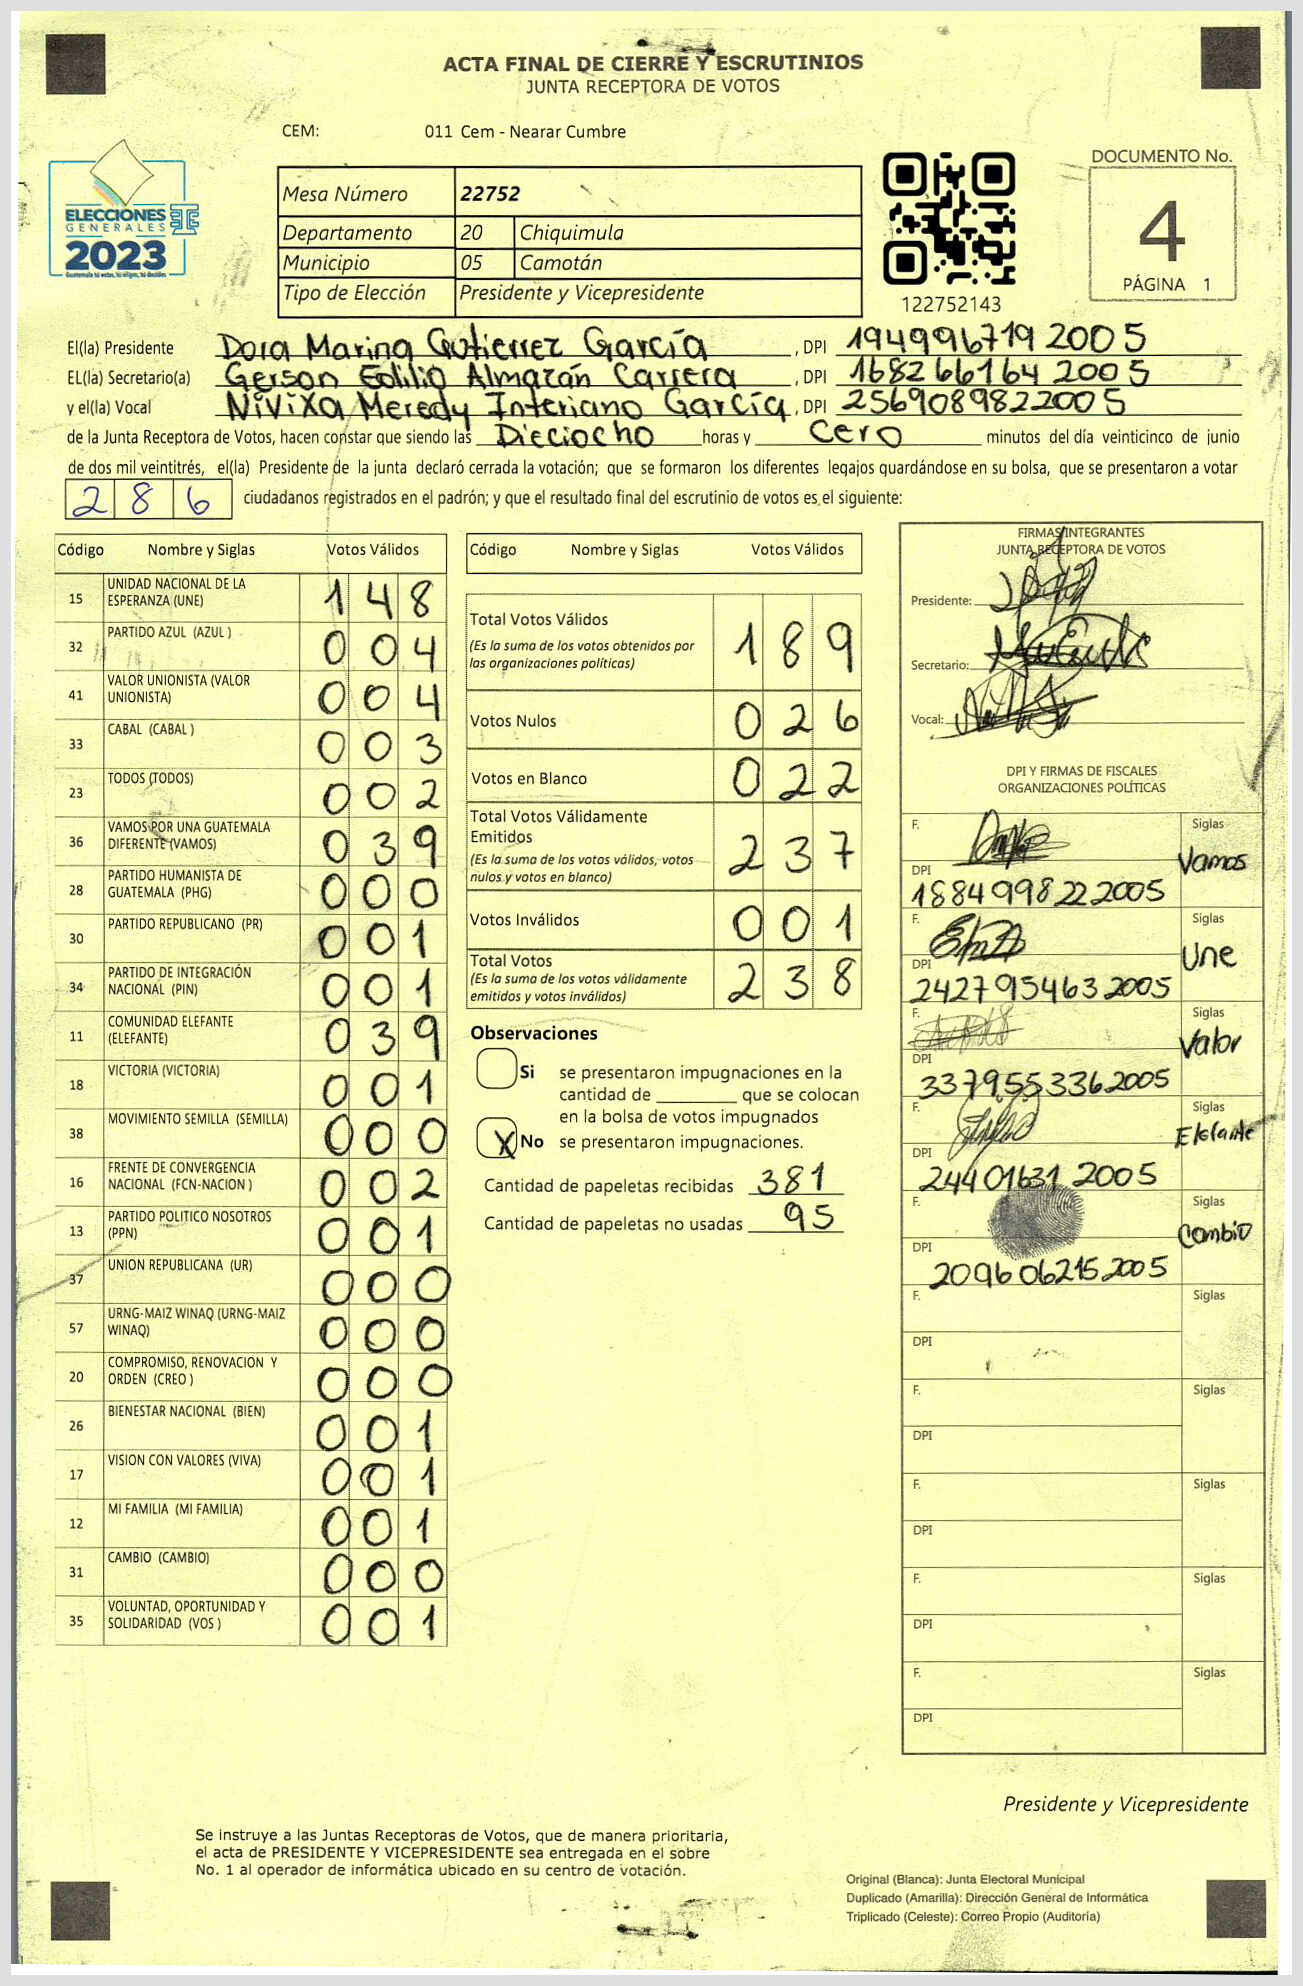 ACTA FINAL DE CIERRE Y ESCRUTINIOS
JUNTA RECEPTORA DE VOTOS
CEM: 011 Cem - Nearar Cumbre
ELECCIONES
GENERALES
2023
Mesa Número 22752
Departamento 20 Chiquimula
Municipio 05 Camotán
Tipo de Elección Presidente y Vicepresidente
122752143
DOCUMENTO No.
4
PÁGINA 1
El(la) Presidente Dora Marina Gutierrez García, DPI 194996719 2005
EL(la) Secretario(a) Gerson Edilio Almazán Carrera, DPI 168266164 2005
y el(la) Vocal NiViXa Meredy Interiano García, DPI 2569089822005
de la Junta Receptora de Votos, hacen constar que siendo las Dieciocho horas y cero minutos del día veinticinco de junio
de dos mil veintitrés, el(la) Presidente de la junta declaró cerrada la votación; que se formaron los diferentes legajos guardándose en su bolsa, que se presentaron a votar
286 ciudadanos registrados en el padrón; y que el resultado final del escrutinio de votos es el siguiente:
Código Nombre y Siglas Votos Válidos
15 UNIDAD NACIONAL DE LA ESPERANZA (UNE) 148
32 PARTIDO AZUL (AZUL ) 004
41 VALOR UNIONISTA (VALOR UNIONISTA) 004
33 CABAL (CABAL ) 003
23 TODOS (TODOS) 002
36 VAMOS POR UNA GUATEMALA DIFERENTE (VAMOS) 039
28 PARTIDO HUMANISTA DE GUATEMALA (PHG) 000
30 PARTIDO REPUBLICANO (PR) 001
34 PARTIDO DE INTEGRACIÓN NACIONAL (PIN) 001
11 COMUNIDAD ELEFANTE (ELEFANTE) 039
18 VICTORIA (VICTORIA) 001
38 MOVIMIENTO SEMILLA (SEMILLA) 000
16 FRENTE DE CONVERGENCIA NACIONAL (FCN-NACION ) 002
13 PARTIDO POLITICO NOSOTROS (PPN) 001
37 UNION REPUBLICANA (UR) 000
57 URNG-MAIZ WINAQ (URNG-MAIZ WINAQ) 000
20 COMPROMISO, RENOVACION Y ORDEN (CREO ) 000
26 BIENESTAR NACIONAL (BIEN) 001
17 VISION CON VALORES (VIVA) 001
12 MI FAMILIA (MI FAMILIA) 001
31 CAMBIO (CAMBIO) 000
35 VOLUNTAD, OPORTUNIDAD Y SOLIDARIDAD (VOS ) 001
Código Nombre y Siglas Votos Válidos
Total Votos Válidos 189
(Es la suma de los votos obtenidos por
las organizaciones políticas)
Votos Nulos 026
Votos en Blanco 022
Total Votos Válidamente
Emitidos 237
(Es la suma de los votos válidos, votos
nulos y votos en blanco)
Votos Inválidos 001
Total Votos 238
(Es la suma de los votos válidamente
emitidos y votos inválidos)
Observaciones
Si se presentaron impugnaciones en la
cantidad de ________ que se colocan
en la bolsa de votos impugnados
X No se presentaron impugnaciones.
Cantidad de papeletas recibidas 381
Cantidad de papeletas no usadas 95
FIRMAS INTEGRANTES
JUNTA RECEPTORA DE VOTOS
Presidente:
Secretario:
Vocal:
DPI Y FIRMAS DE FISCALES
ORGANIZACIONES POLÍTICAS
F. Siglas
Vamos
DPI
188499822 2005
F. Siglas
Une
DPI
242795463 2005
F. Siglas
Valor
DPI
337955336 2005
F. Siglas
Elefante
DPI
24401631 2005
F. Siglas
Cambio
DPI
209606215 2005
F. Siglas
DPI
F. Siglas
DPI
F. Siglas
DPI
F. Siglas
DPI
F. Siglas
DPI
Presidente y Vicepresidente
Se instruye a las Juntas Receptoras de Votos, que de manera prioritaria,
el acta de PRESIDENTE Y VICEPRESIDENTE sea entregada en el sobre
No. 1 al operador de informática ubicado en su centro de votación.
Original (Blanca): Junta Electoral Municipal
Duplicado (Amarilla): Dirección General de Informática
Triplicado (Celeste): Correo Propio (Auditoría)